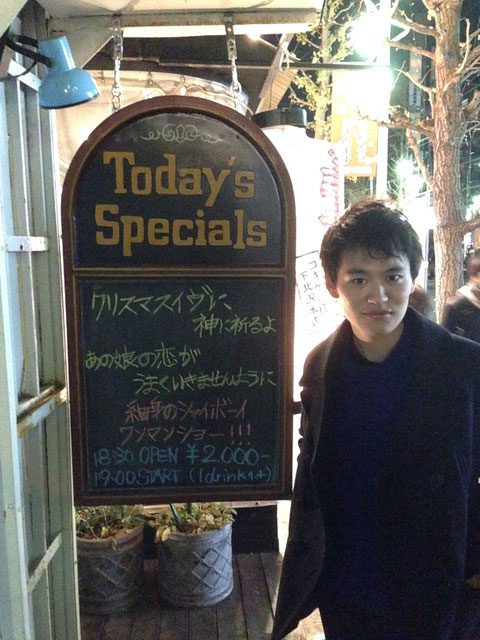 Today's
Specials
クリスマスイヴに
神に祈るよ
あの娘の恋が
うまくいきませんように
細身のシャイボーイ
ワンマンショー!!!
18:30 OPEN ¥2.000-
19:00 START (1drink付)